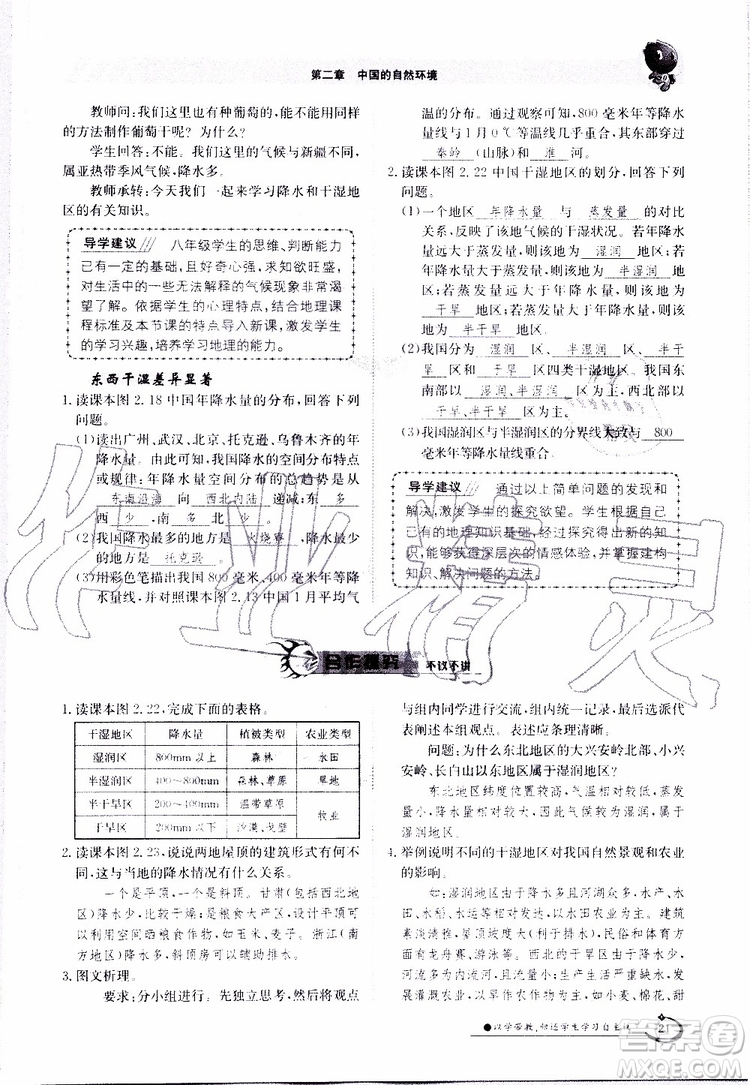 第二章 中国的自然环境
教师问:我们这里也有种葡萄的,能不能用同样
的方法制作葡萄干呢?为什么?
学生回答:不能。我们这里的气候与新疆不同,
属亚热带季风气候,降水多。
教师承转:今天我们一起来学习降水和干湿地
区的有关知识。
导学建议 八年级学生的思维、判断能力
已有一定的基础,且好奇心强,求知欲旺盛,
对生活中的一些无法解释的气候现象非常渴
望了解。依据学生的心理特点,结合地理课
程标准及本节课的特点导入新课,激发学生
的学习兴趣,培养学习地理的能力。
东西干湿差异显著
1. 读课本图 2.18 中国年降水量的分布,回答下列
问题。
(1)读出广州、武汉、北京、托克逊、乌鲁木齐的年
降水量。根据我国降水的空间分布特点
或规律:年降水量的空间分布总趋势是从
东南沿海 向 西北内陆 递减;东 多
西 少 ,南 多 北 少 。
(2)我国降水最多的地方是 火烧寮 ,降水最
少的地方是 托克逊 。
(3)用彩色笔描出 800 毫米、400 毫米年等降
水量线,并对照图 2.13 中国 1 月平均气
温的分布。通过观察可知,800 毫米年等降水
量线与 1 月 0 ℃等温线几乎重合,其东部穿过
秦岭 (山脉)和 淮 河。
2. 读课本图 2.22 中国干湿地区的划分,回答下列
问题。
(1)一个地区 年降水量 与 蒸发量 的对比
关系,反映了该地气候的干湿状况。若年
降水量大于蒸发量,则该地为 湿润 区;若
年降水量略大于蒸发量,则该地为 半湿润 区;若
年降水量小于蒸发量,则该地为
干旱 区。
(2)我国分为 湿润 区、 半湿润 区、 半干
旱 区和 干旱 区四类干湿地区。我国东
南部以 湿润、半湿润 区为主,西北部以
干旱、半干旱 区为主。
(3)我国湿润区与半湿润区的分界线大致与 800
毫米年等降水量线重合。
导学建议 通过以上简单问题的发现和
解决,激发学生的探究欲望。学生根据自己
已有的地理知识基础,经过探究得出新的知
识,能够获得深层次的情感体验,并掌握建构
知识、解决问题的方法。
合作探究 不议不讲
1. 读课本图 2.22,完成下面的表格。
干湿地区 降水量 植被类型 农业类型
湿润区 800mm 以上 森林 水田
半湿润区 400～800mm 森林、草原 旱地
半干旱区 200～400mm 温带草原 牧业
干旱区 200mm 以下 沙漠、戈壁
2. 读课本图 2.23,说说两地屋顶的建筑形式有何不同,
这与当地的降水情况有什么关系。
一个是平顶,一个是斜顶。甘肃(包括西北地
区)降水少,气候干燥;是粮食大产区,设计平顶可
以归晒或存放粮食作物,如玉米、麦子。浙江(南
方地区)降水多,斜顶有利于排水。
3. 图文析理。
要求:分小组进行。先独立思考,并将观点
与组内同学进行交流,组内统一观点后,选派代
表阐述本组观点。表述应条理清晰。
问题:为什么东北地区的大兴安岭北部、小兴
安岭、长白山以东地区属于湿润地区?
东北地区,尤其是北部纬度较高,气温低,蒸发
量小,降水量大于蒸发量,因此气候湿润,属于
湿润地区。
4. 举例说明不同的干湿地区对我国自然景观和农业
的影响。
如:湿润地区气候湿润且河湖众多,农业多水
田,水稻、水产养殖业发达。建筑
素淡清雅,屋顶坡度大(利于排水),民俗和体育多
赛龙舟、游泳等。西北的干旱区气候干旱降水少,
河流多内流河,多荒漠,农业生产严重缺水,发
展灌溉农业,以种植耐旱作物为主,如小麦、棉花、甜
●以学带教,促进学生学习自主化
21
作业精灵
答案圈